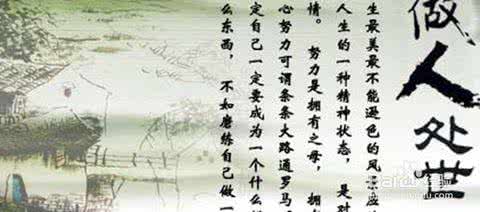 做人处世
生最美最不能逊色的风景应
人生的一种精神状态，是对
情。努力是拥有之母，拥
心努力可谓条条大路通罗马
定自己一定要成为一个什么
么东西，不如磨练自己做一